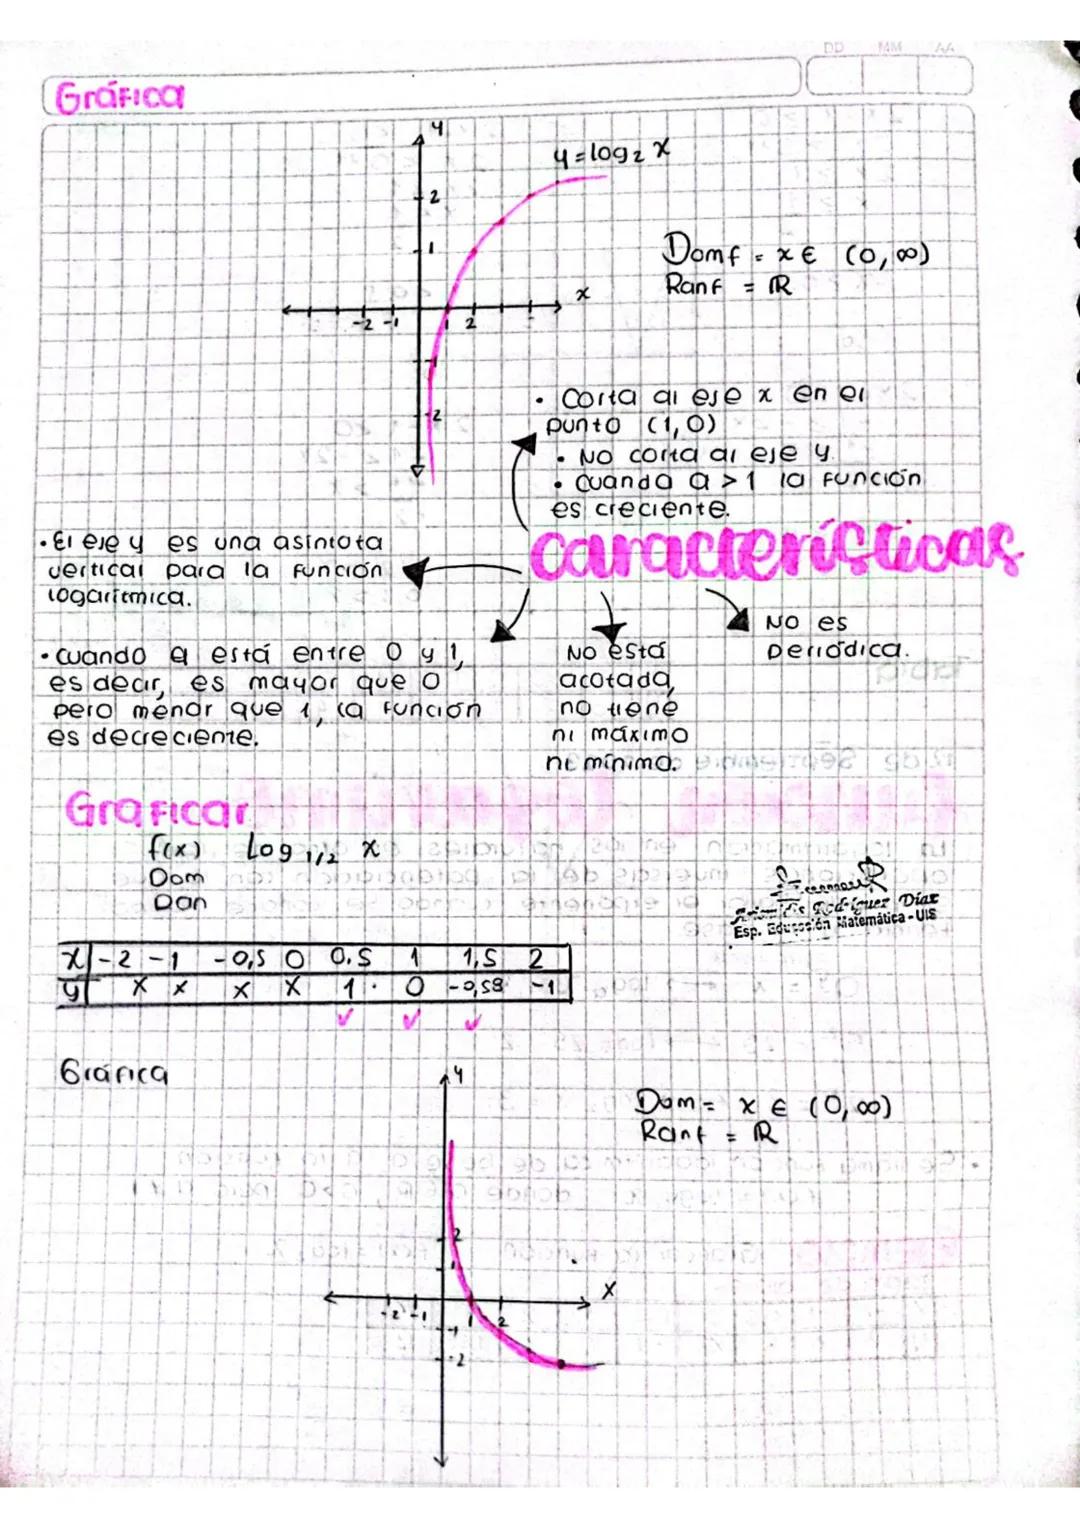 DD MM AA
Gráfica
y
y = log2 x
2
1
Domf = x ∈ (0, ∞)
Ranf = ℝ
x
-2 -1 1 2
-1
-2
• Corta al eje x en el
punto (1,0)
• No corta al eje y.
• cuando a > 1 la función
es creciente.
características
• El eje y es una asíntota
vertical para la función
logarítmica.
• cuando a está entre 0 y 1,
es decir, es mayor que 0
pero menor que 1, la función
es decreciente.
No está
acotada,
no tiene
ni máximo
ni mínimo.
No es
periódica.
Graficar
f(x) Log 1/2 x
Dom
Dan
Rodríguez Díaz
Esp. Educación Matemática - UIS
x -2 -1 -0,5 0 0.5 1 1,5 2
y x x x x 1 . 0 -0,58 -1
Gráfica
y
Dom = x ∈ (0, ∞)
Ranf = ℝ
2
1
x
-2 -1 1 2
-1
-2